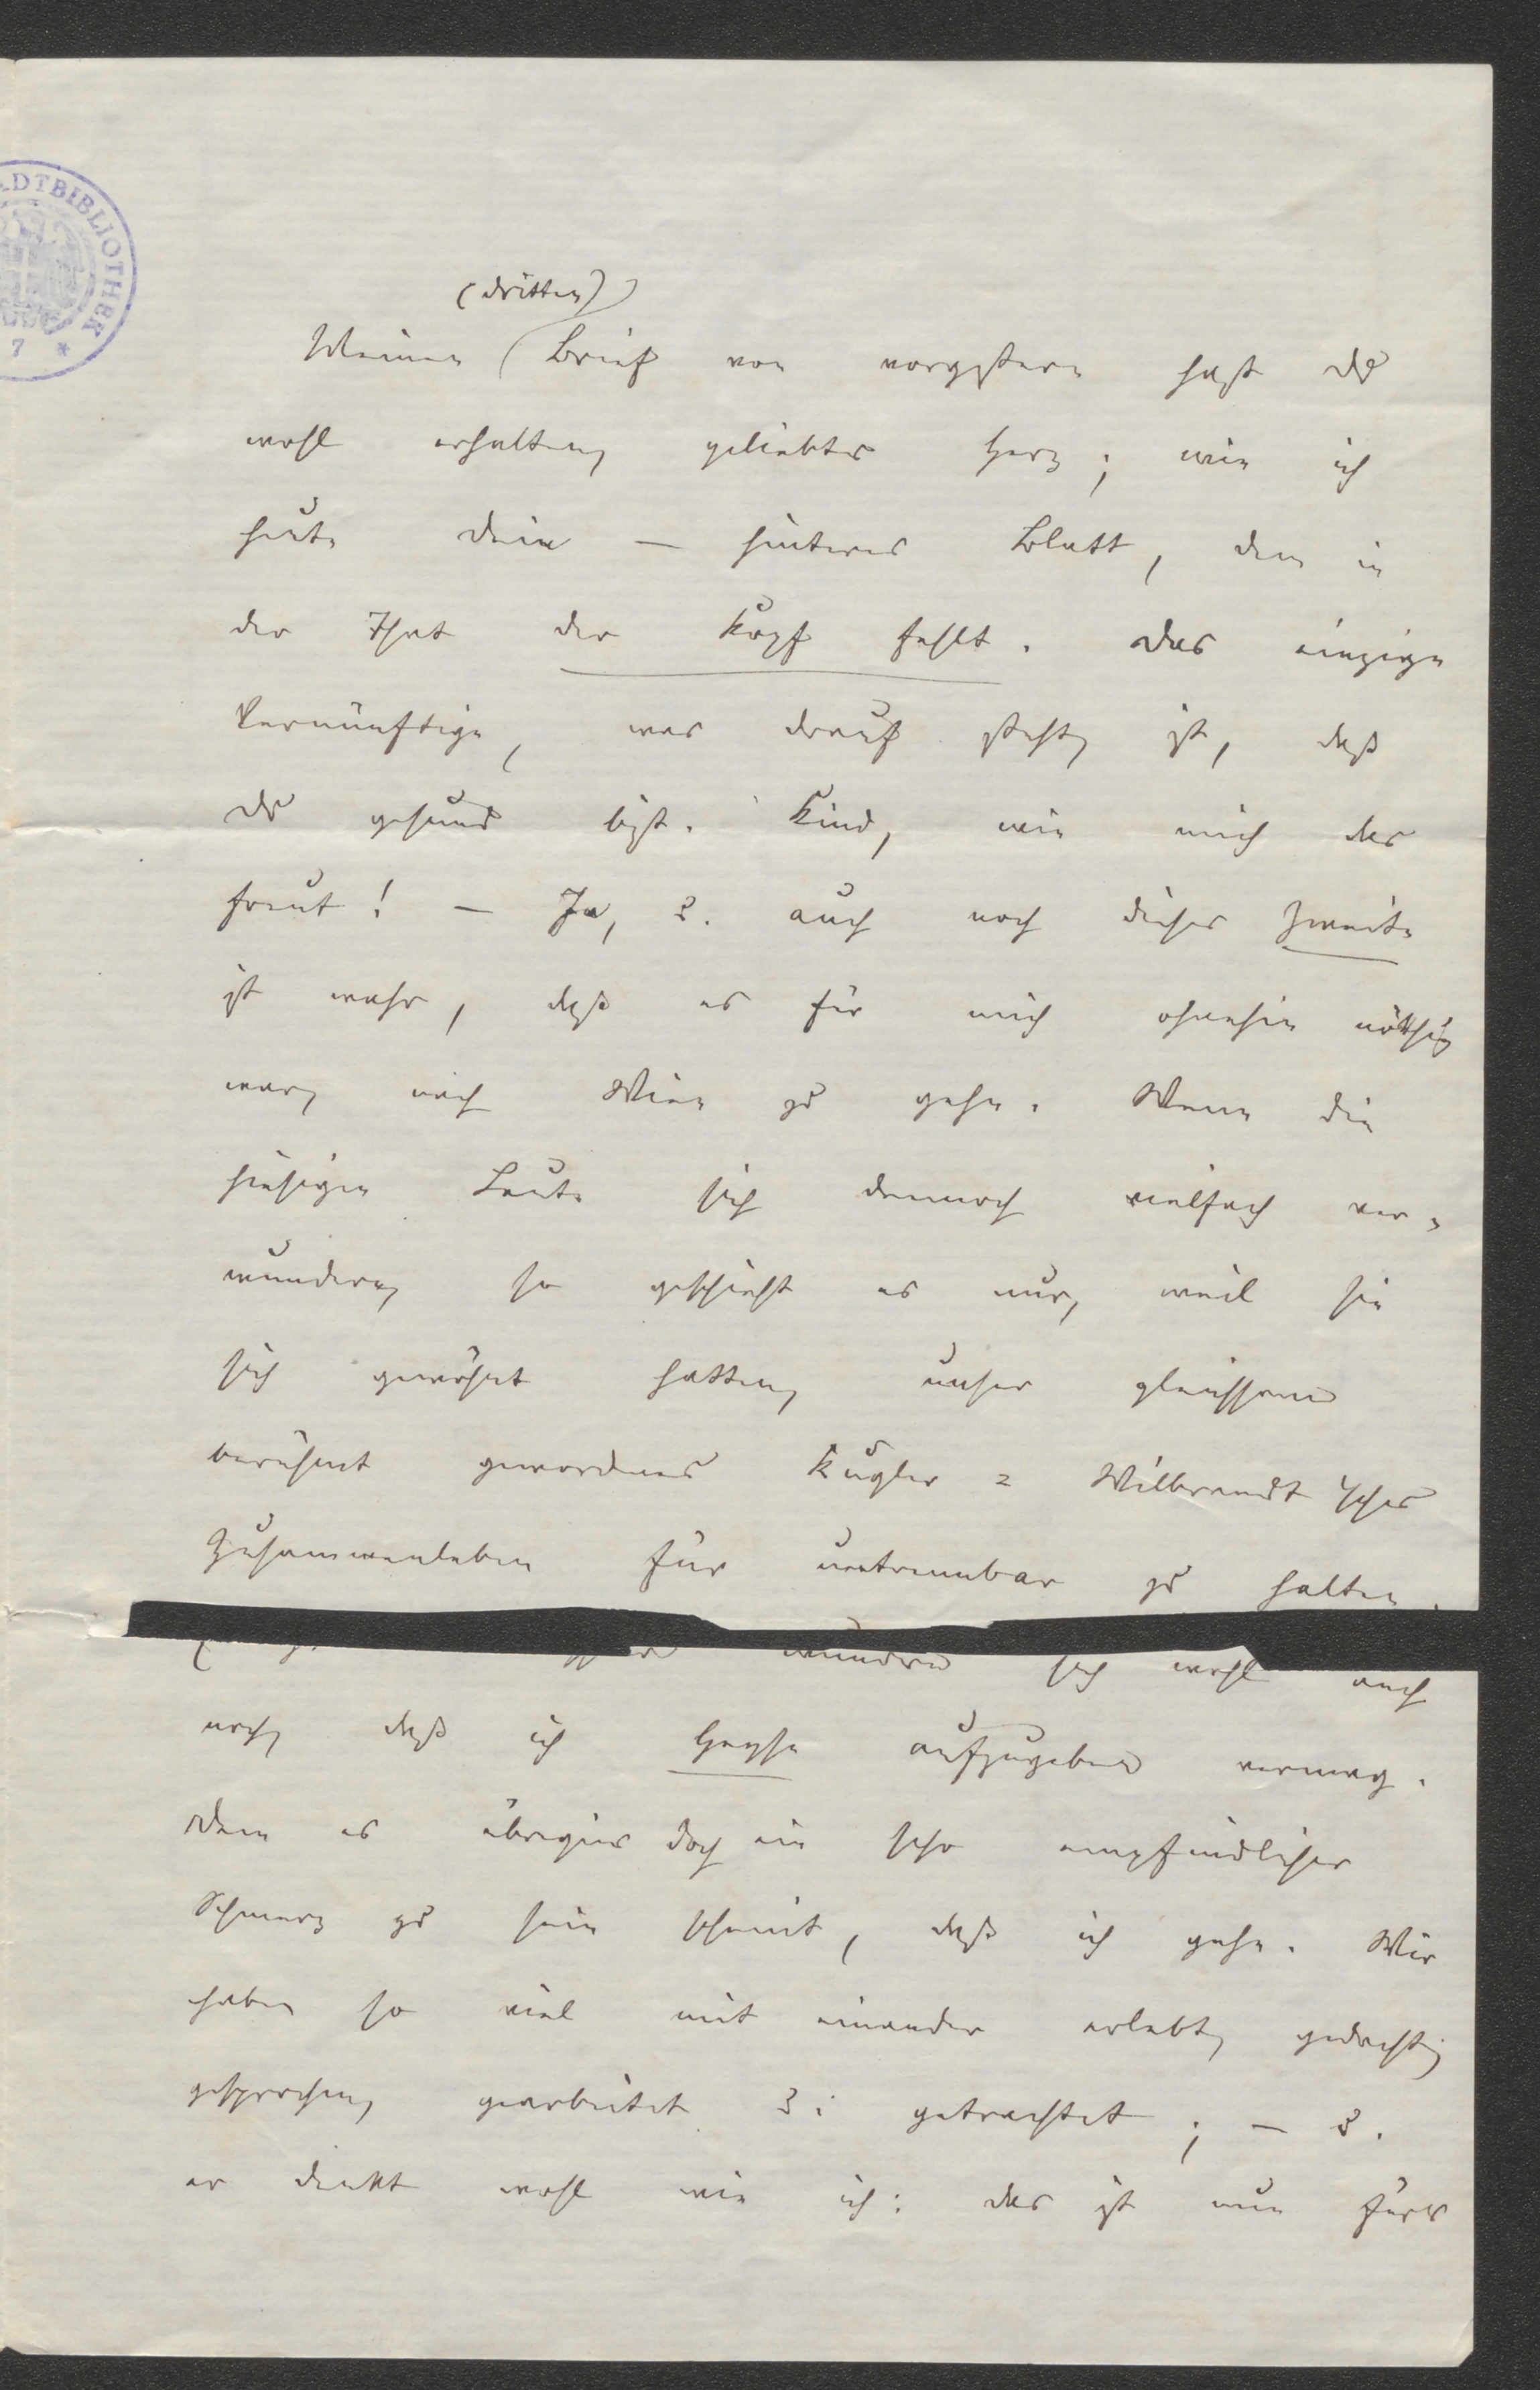 DTBIBLIOTHEK
7 *
(dritten)
Meinen Brief von vorgestern hast du
wohl erhalten, geliebtes Herz; wie ich
heute dein — hinteres Blatt, dem in
der That der Kopf fehlt. Das einzige
Vernünftige, was drauf steht, ist, daß
du gesund bist. Kind, wie mich das
freut! — Ja, u. auch noch dieses Zweite
ist wahr, daß es für mich ohnehin nöthig
war, nach Wien zu gehn. Wenn die
hiesigen Leute sich dennoch vielfach ver-
wundern, so geschieht es nur, weil sie
sich gewöhnt hatten, unser gleichsam
berühmt gewordenes Kugler-Wilbrandt'sches
Zusammenleben für untrennbar zu halten.
wundern sich wohl auch
noch, daß ich Heyse aufzugeben vermag.
Dem es übrigens doch ein sehr empfindlicher
Schmerz zu sein scheint, daß ich gehe. Wir
haben so viel mit einander erlebt, gedacht,
gesprochen, gearbeitet u. getrachtet; — u.
er denkt wohl wie ich: das ist nun fürs